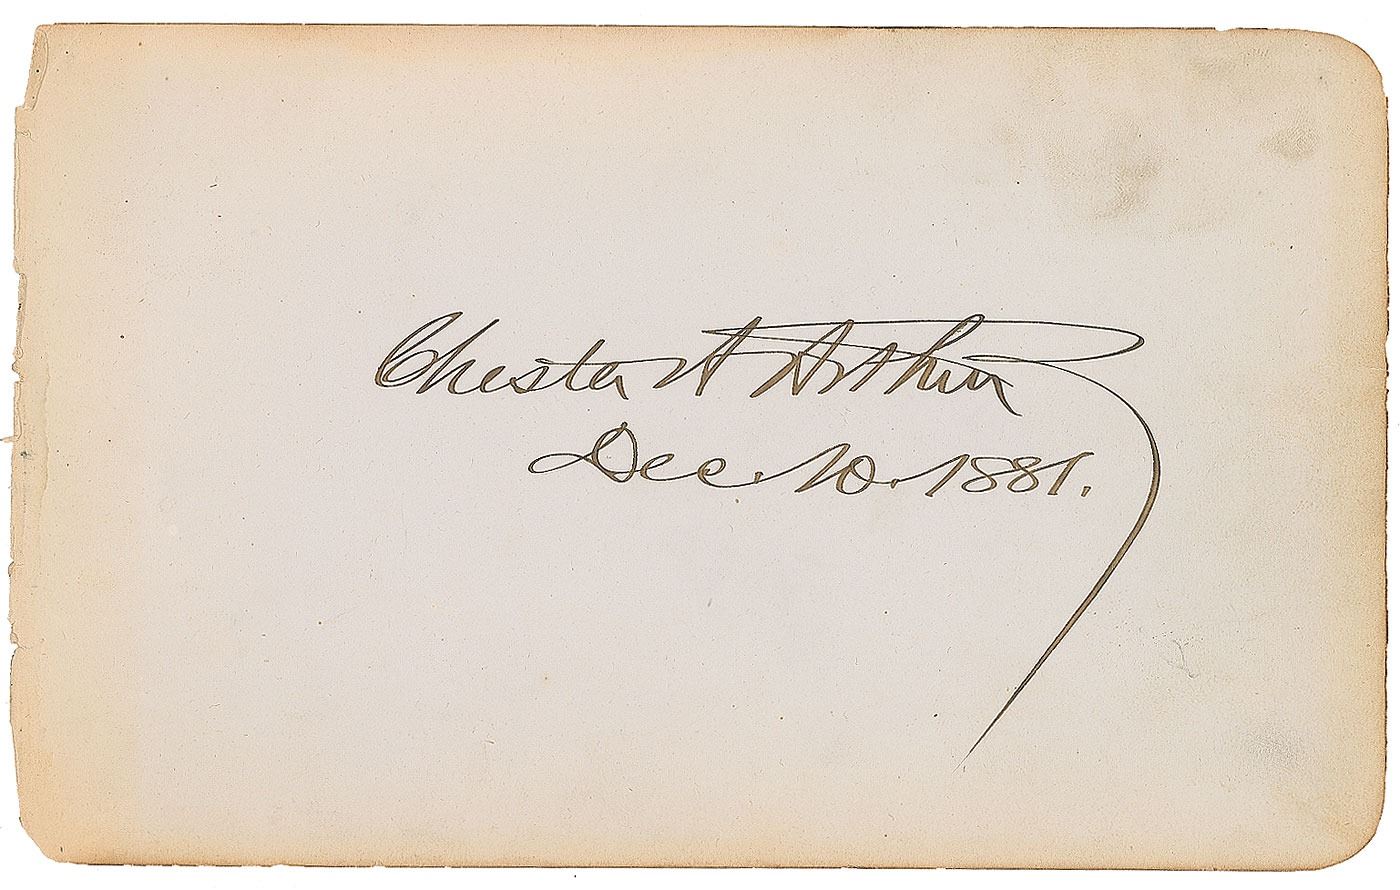 Chester A Arthur
Dec. 10. 1881.